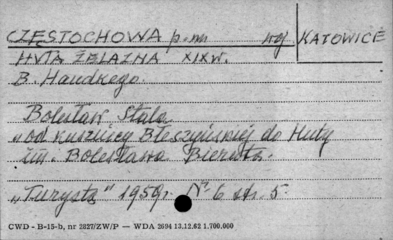 CZĘSTOCHOWA p.m. woj. KATOWICE
HUTA ŻELAZNA XIX w.
B. Handkego.
Bolesław Stala
„od kuźnicy Błeszyńskiej do Huty
im. Bolesława Bieruta.
„Turysta" 1959r. Nr. 6 str. 5.
CWD - B-15-b, nr 2827/ZW/P — WDA 2694 13.12.62 1.700.000